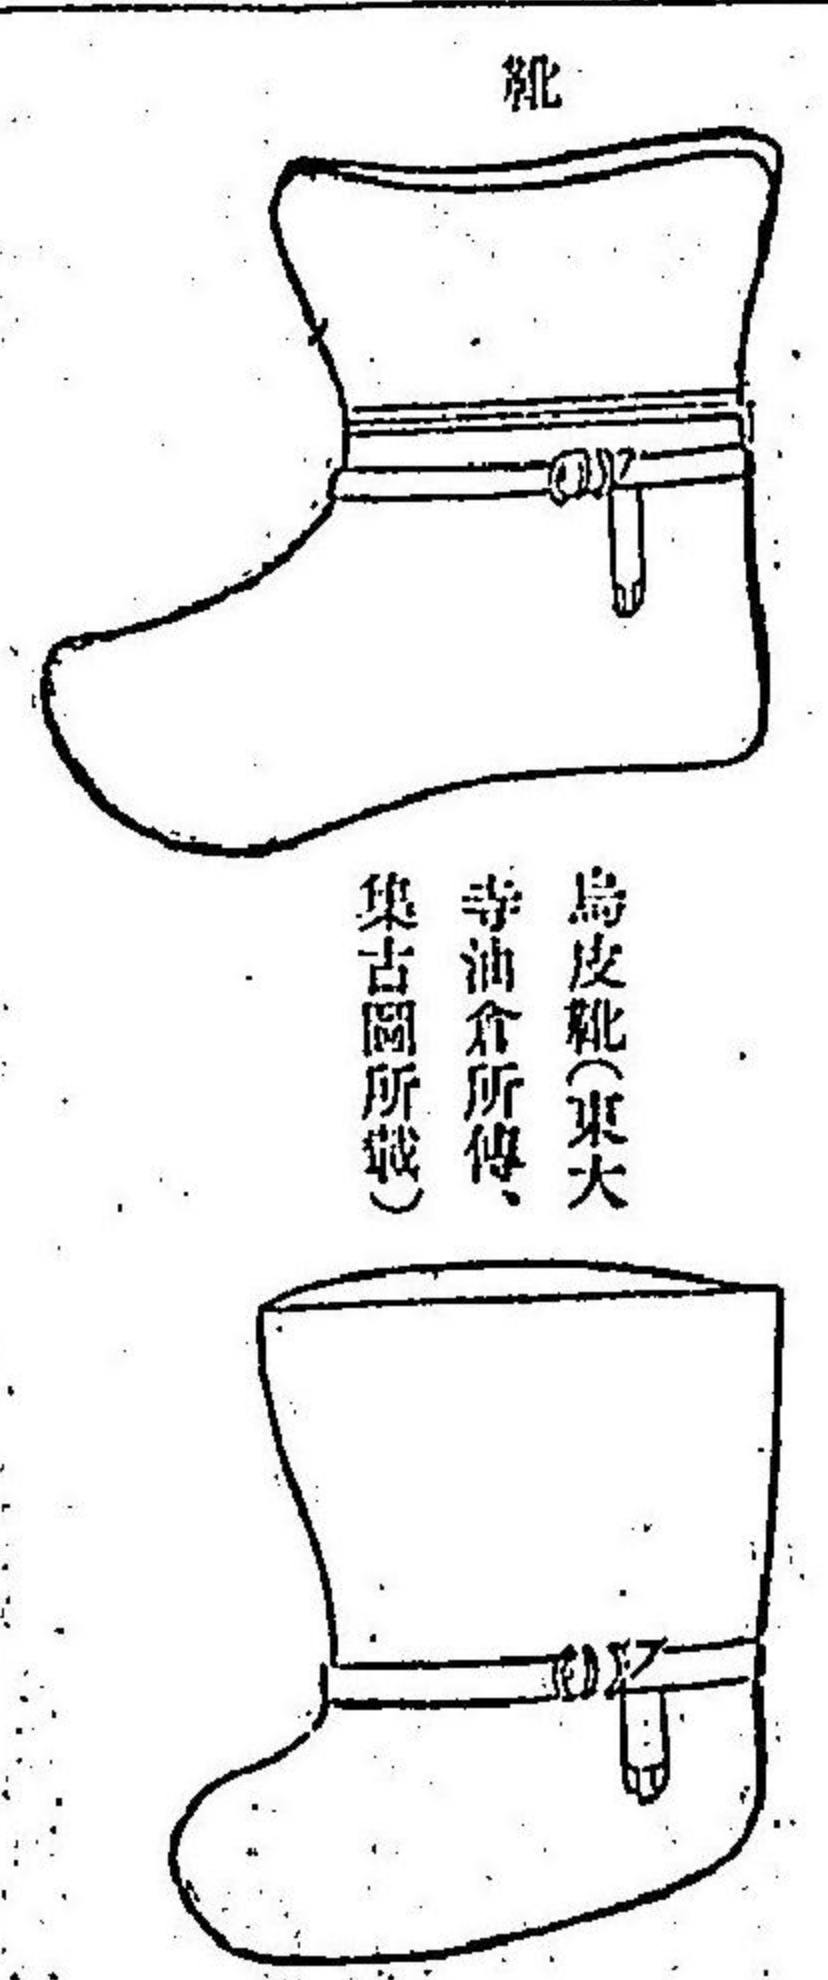 靴
烏皮靴(東大
寺油倉所傳、
集古圖所載)